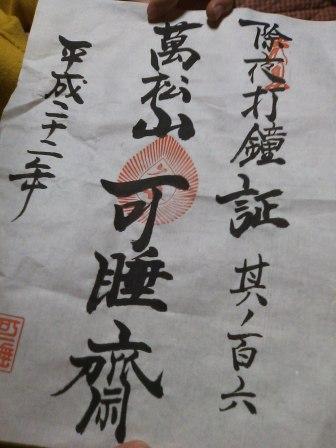 除夜打鐘証 其ノ百六
萬松山 可睡齋
平成二十二年